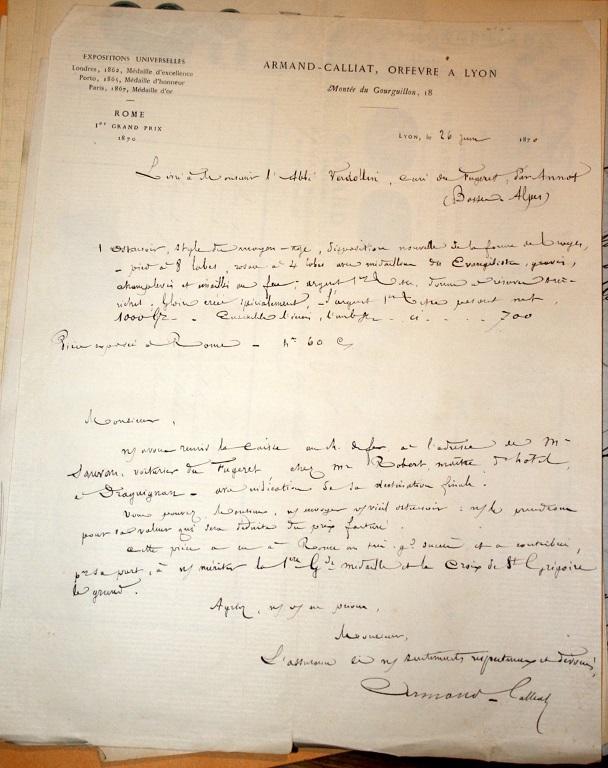 EXPOSITIONS UNIVERSELLES
Londres, 1862, Médaille d'excellence
Porto, 1865, Médaille d'honneur
Paris, 1867, Médaille d'or
ROME
1er GRAND PRIX
1870
ARMAND-CALLIAT, ORFEVRE A LYON
Montée du Gourguillon, 18
LYON, le 26 juin 1870
Livré à Monsieur l'Abbé Verdollin, curé du Fugeret, par Annot
(Basses Alpes)
1 ostensoir, style du moyen-âge, disposition nouvelle de la forme de
pied à 8 lobes, à 4 lobes avec médaillons des Evangélistes, gravés,
champlevés et émaillés au feu; argent 1er titre, dorure
spécialement, d'argent 1er titre pesant net
1000 gr Ensemble ci 700
Pièce exposée à Rome n° 60
Monsieur,
ns avons remis la caisse au ch. de fer à l'adresse de Mr
Sauvan, voiturier du Fugeret chez Mr Robert, maître d'hôtel,
à Draguignan avec indication de sa destination finale.
Vous pouvez, Monsieur, ns envoyer vs vieil ostensoir: ns le prendrons
pour sa valeur qui sera déduite du prix facturé.
Cette pièce a eu à Rome un très gd succès et a contribué,
pr sa part, à ns mériter la 1ère Gde médaille et la Croix de St Grégoire
le grand.
Agréez, ns vs en prions,
Monsieur,
L'assurance de ns sentiments respectueux et dévoués,
Armand-Calliat